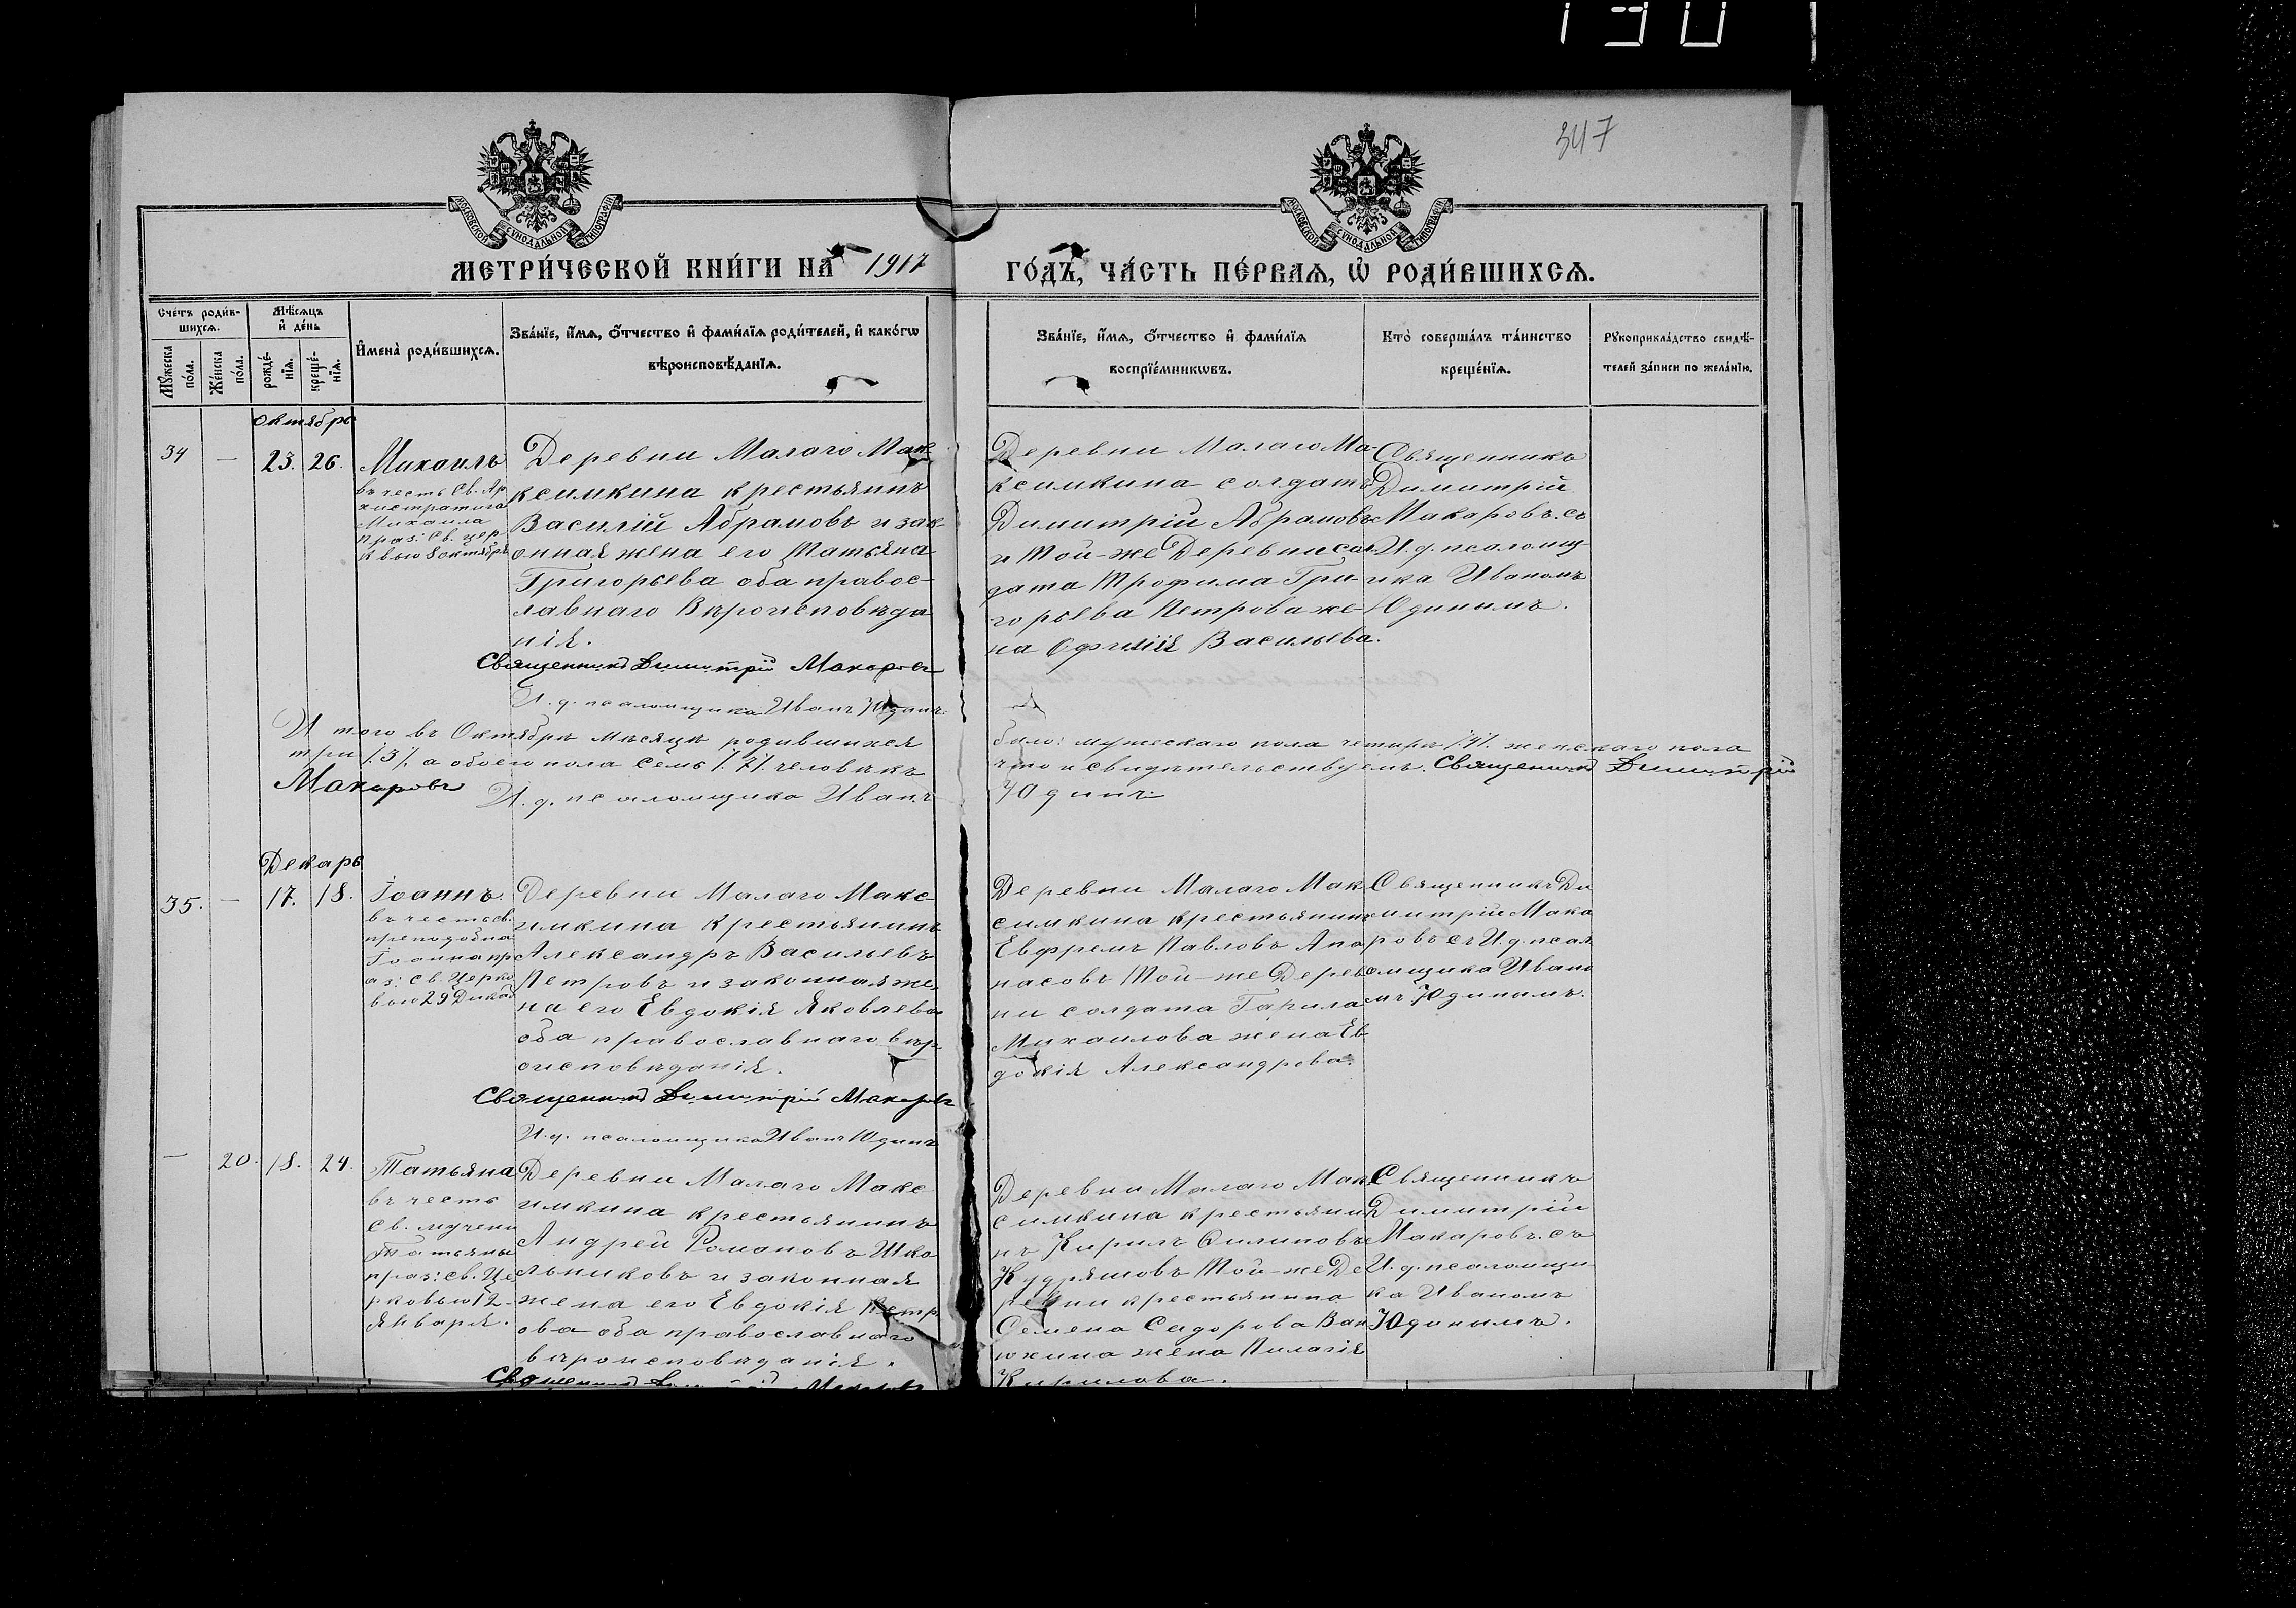 347
МОСКОВСКОЙ СѴНОДАЛЬНОЙ ТИПОГРАФІИ
МОСКОВСКОЙ СѴНОДАЛЬНОЙ ТИПОГРАФІИ
МЕТРИ́ЧЕСКОЙ КНИ́ГИ НА 1917
ГО́ДЪ, ЧА́СТЬ ПЕ́РВАѦ, Ѡ҆ РОДИ́ВШИХСѦ.
Сче́тъ роди́в-
шихсѧ.
Мꙋ́жеска по́ла.
Же́нска по́ла.
Мѣ́сѧцъ
и҆ де́нь
рожде́-
нїѧ.
креще́-
нїѧ.
И҆мена̀ роди́вшихсѧ.
Зва́нїе, и҆́мѧ, ѻ҆́тчество и҆ фами́лїѧ роди́телей, и҆ како́гѡ
вѣроисповѣ́данїѧ.
Зва́нїе, и҆́мѧ, ѻ҆́тчество и҆ фами́лїѧ
воспрїе́мникѡвъ.
Кто̀ соверша́лъ та́инство
креще́нїѧ.
Рꙋкоприкла́дство свидѣ́-
телей за́писи по жела́нїю.
Октябрь
34
—
23.
26.
Михаилъ
въ честь Св. Ар
хистратига
Михаила
праз: Св. цер
Деревни Малаго Мак
ксимкина крестьянинъ
Василій Абрамовъ и зак
онная жена его Татьяна
Григорьева оба правос-
лавнаго Вѣроисповѣда
нія.
Священникъ Димитрій Макаровъ
И. д. псаломщика Иванъ Юдинъ.
Деревни Малаго Ма-
ксимкина солдатъ
Димитрій Абрамовъ
и Той-же Деревни сол
дата Трофима Гри-
горьева Петрова же
на Васильева.
Священникъ
Димитрій
Макаровъ. съ
И. д. псаломщ
ика Иваномъ
Юдинымъ.
И того въ Октябрѣ мѣсяцѣ родившихся
было: мужескаго пола четыре /4/. женскаго пола
три /.3/. а обоего пола семь /.7/. человѣкъ
что и свидѣтельствуемъ. Священникъ Димитрій
Макаровъ И. д. псаломщика Иванъ
Юдинъ
Декарь
35.
—
17.
18.
Іоаннъ.
въ честь св.
преподобна
Іоанна пр
аз: св. Церко
вью 29 Дикаб
Деревни Малаго Макс-
имкина Крестьянинъ
Александръ Васильевъ
Петровъ и законная же
на его Евдокія Яковлева
оба православнаго вѣр
оисповѣданія.
Священникъ Димитрій Макаровъ
И. д. псаломщика Иванъ Юдинъ
Деревни Малаго Мак
симкина крестьянинъ
Евфремъ Павловъ Апа
насовъ Той-же Дерев
ни солдата Гарила
Михаилова жена Ев
докія Александрова.
Священникъ Ди
митрій Мака
ровъ съ И. д. псал
омщика Ивано
мъ Юдинымъ.
—
20.
18.
24.
Татьяна
въ честь
св. мучени
Татьяны
праз: св. Це
рковью 12-
Января.
Деревни Малаго Макс
имкина крестьянинъ
Андрей Романовъ Шко
льниковъ и законная
жена его Евдокія Петр
ова оба православнаго
вѣроисповѣданія.
Священникъ Димитрій Макаровъ
Деревни Малаго Мак
симкина крестьяни
нъ Кирилъ Филиповъ
Кудряшовъ Той-же Де
ревни крестьянина
Семена Сидорова Ван
юхина жена Пилагія
Кирилова.
Священникъ
Димитрій
Макаровъ. съ
И. д. псаломщи
ка Иваномъ
Юдинымъ.